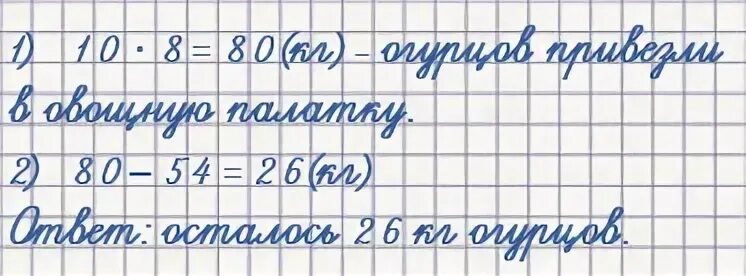 1) 10 · 8 = 80 (кг) – огурцов привезли
в овощную палатку.
2) 80 – 54 = 26 (кг)
Ответ: осталось 26 кг огурцов.